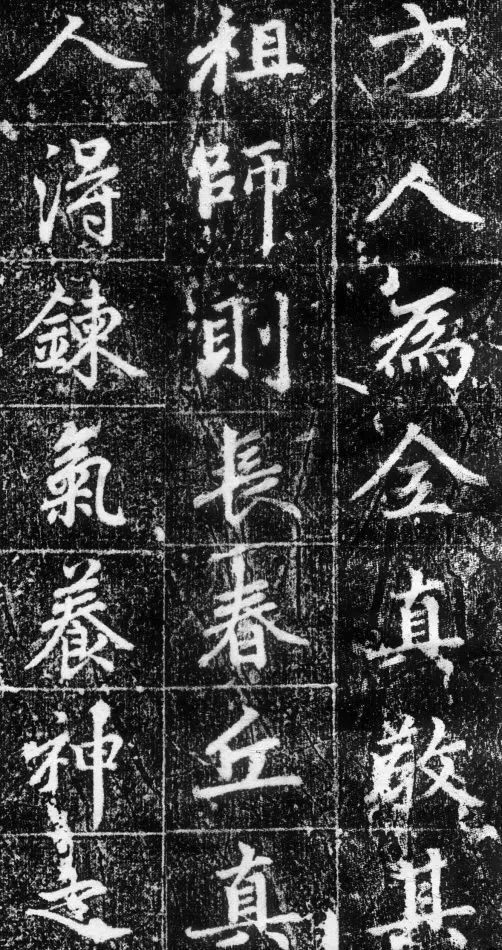 方人為全真教其
祖師則長春丘真
人得鍊氣養神